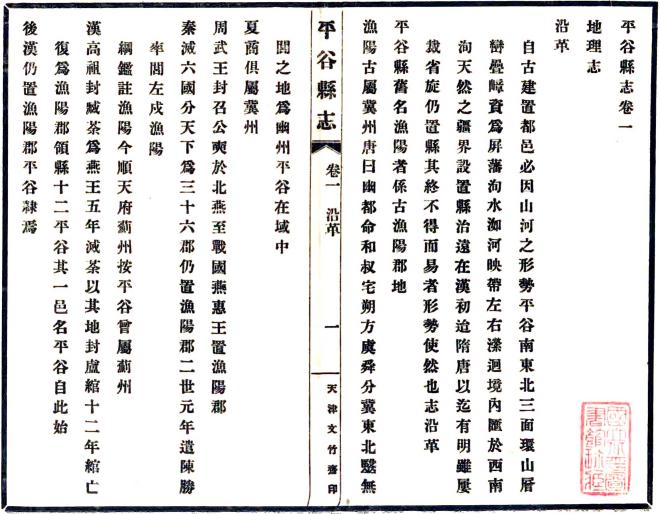 平谷縣志卷一
地理志
沿革
自古建置都邑必因山河之形勢平谷南東北三面環山層
巒疊嶂資爲屏藩泃水洳河映帶左右瀠迴境內匯於西南
洵天然之疆界設置縣治遠在漢初迨隋唐以迄有明雖屢
裁省旋仍置縣其終不得而易者形勢使然也志沿革
平谷縣舊名漁陽者係古漁陽郡地
漁陽古屬冀州唐曰幽都命和叔宅朔方虞舜分冀東北醫無
平谷縣志
卷一 沿革
一
天津文竹齋印
閭之地爲幽州平谷在域中
夏商俱屬冀州
周武王封召公奭於北燕至戰國燕惠王置漁陽郡
秦滅六國分天下爲三十六郡仍置漁陽郡二世元年遣陳勝
率閭左戍漁陽
綱鑑註漁陽今順天府薊州按平谷曾屬薊州
漢高祖封臧荼爲燕王五年滅荼以其地封盧綰十二年綰亡
復爲漁陽郡領縣十二平谷其一邑名平谷自此始
後漢仍置漁陽郡平谷隸焉